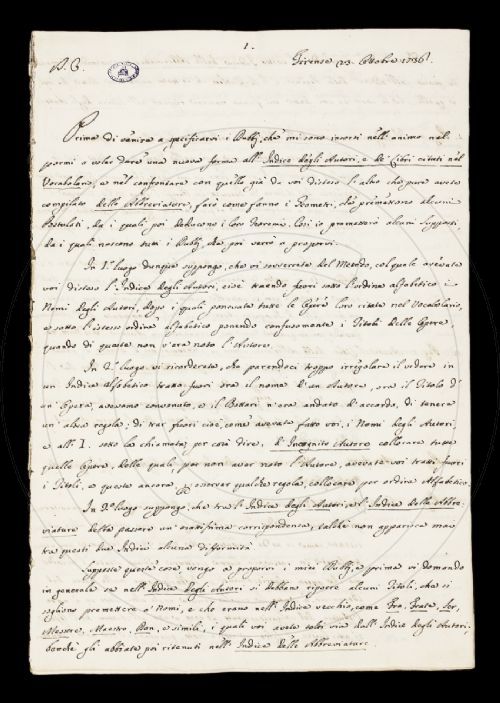 1.
A. C. Firenze 23. Ottobre 1736.
Prima di venire a specificarvi i Dubbj, che mi sono insorti nell'animo nel
pormi a voler dare una nuova forma all'Indice degli Autori, e De' Libri citati nel
Vocabolario, e nel confrontare con quello già da voi disteso l'altro che pure avete
compilato delle Abbreviature, farò come fanno i Geometri, che premettono alcuni
Postulati, da i quali poi deducono i loro Teoremi. Così io premetterò alcuni Supposti,
da i quali nascono tutti i Dubbj, che poi verrò a proporvi.
In 1.° luogo dunque suppongo, che vi sovverrete del Metodo, col quale avevate
voi disteso l'Indice degli Autori, cioè traendo fuori sotto l'ordine alfabetico i
Nomi degli Autori, dopo i quali ponevate tutte le Opere loro citate nel Vocabolario,
e sotto l'istesso ordine alfabetico ponendo confusamente i Titoli delle Opere,
quando di queste non v'era noto l'Autore.
In 2.° luogo vi ricorderete, che parendoci troppo irregolare il vedere in
un Indice alfabetico tratto fuori ora il nome d'un Autore, ora il Titolo d'
un'Opera, avevamo convenuto, e il Bottari n'era andato d'accordo, di tenere
un'altra regola: di trar fuori cioè, come avevate fatto voi, i Nomi degli Autori,
e all'I. sotto la chiamata per così dire, d'Incognito Autore collocare tutte
quelle Opere, delle quali per non aver noto l'Autore, avevate voi tratti fuori
i Titoli, e queste ancora per osservar qualche regola, collocare per ordine Alfabetico.
In 3.° luogo suppongo, che tra l'Indice degli Autori, e l'Indice delle Abbre-
viature debba passare un'esattissima corrispondenza, talchè non apparisca mai
tra questi due Indici alcuna difformità.
Supposte queste cose vengo a proporvi i miei Dubbj, e prima vi domando
in generale se nell'Indice degli Autori si debbano ripore alcuni Titoli, che si
sogliono premettere a' Nomi, e che erano nell'Indice vecchio, come Fra, Frate, Ser,
Messere, Maestro, Don, e simili, i quali voi avete tolti via dall'Indice degli Autori,
benchè gli abbiate poi ritenuti nell'Indice delle Abbreviature.